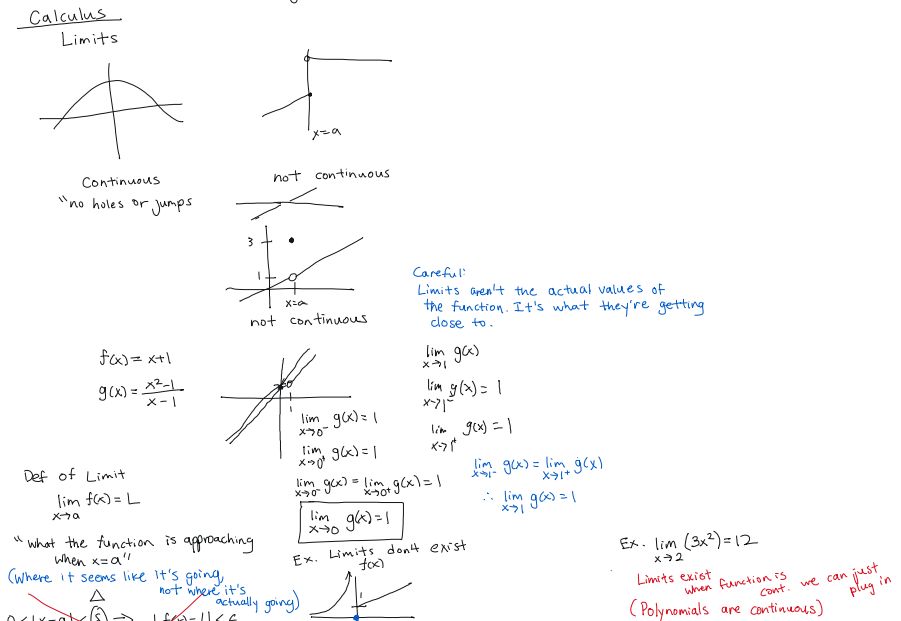 Calculus
Limits
x=a
Continuous
"no holes or jumps
not continuous
3
1
x=a
not continuous
Careful:
Limits aren't the actual values of
the function. It's what they're getting
close to.
f(x) = x+1
g(x) = x²-1 / x-1
1
lim x→0⁻ g(x) = 1
lim x→0⁺ g(x) = 1
lim x→0⁻ g(x) = lim x→0⁺ g(x) = 1
lim x→0 g(x) = 1
lim x→1 g(x)
lim x→1⁻ g(x) = 1
lim x→1⁺ g(x) = 1
lim x→1⁻ g(x) = lim x→1⁺ g(x)
∴ lim x→1 g(x) = 1
Def of Limit
lim x→a f(x) = L
"what the function is approaching
when x=a"
(Where it seems like it's going,
not where it's
actually going)
Ex. Limits don't exist
f(x)
1
Ex. lim x→2 (3x²) = 12
Limits exist
when function is
cont. we can just
plug in
(Polynomials are continuous)